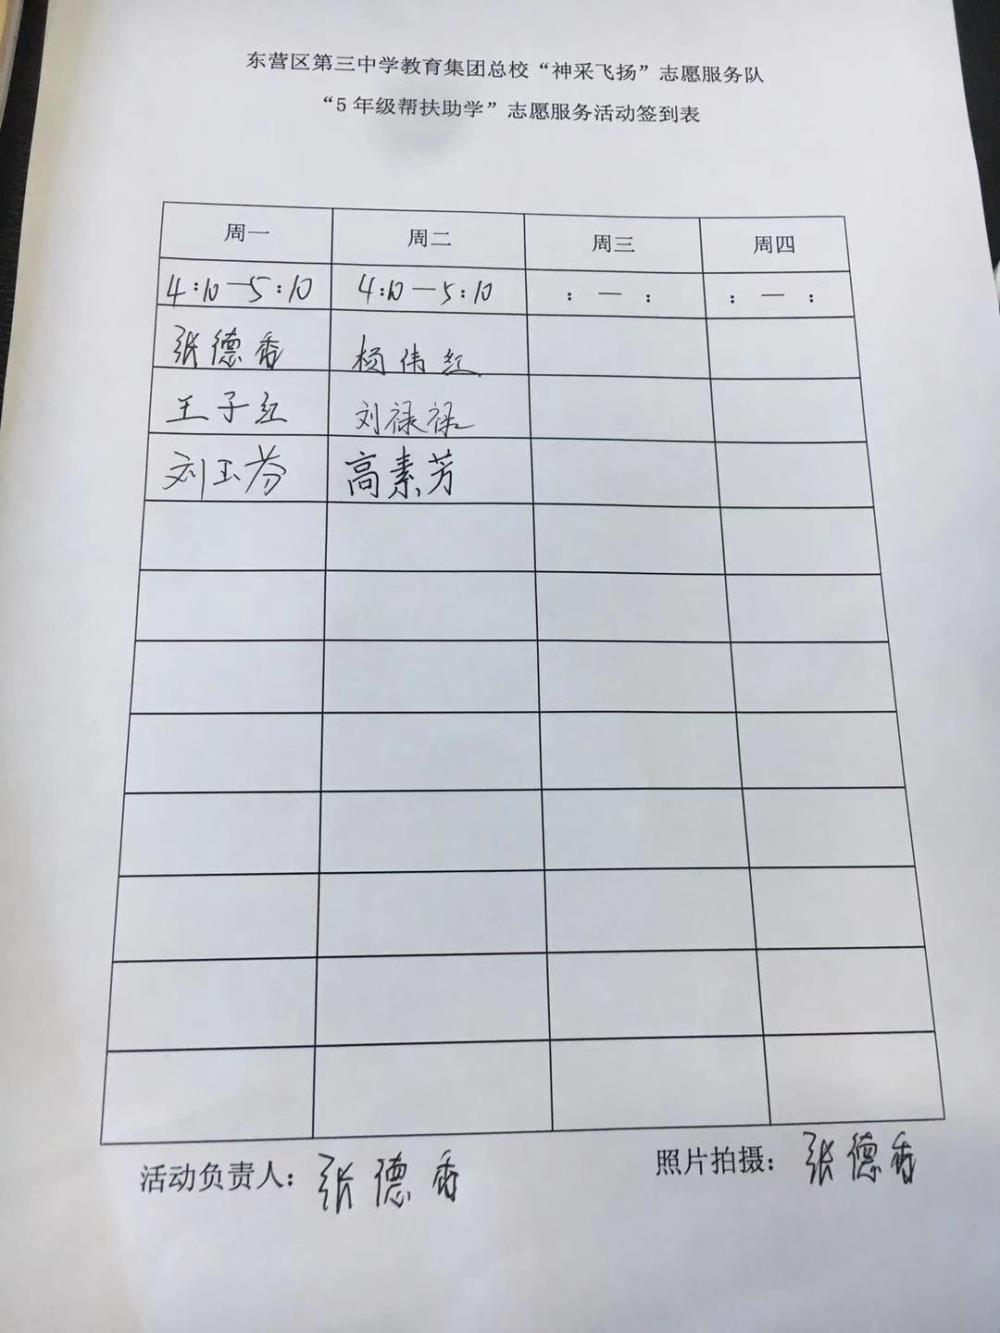 东营区第三中学教育集团总校“神采飞扬”志愿服务队
“5年级帮扶助学”志愿服务活动签到表
周一 周二 周三 周四
4:10—5:10 4:10—5:10 : — : : — :
张德香 杨伟红
王子红 刘禄禄
刘玉芬 高素芳
活动负责人：张德香 照片拍摄：张德香